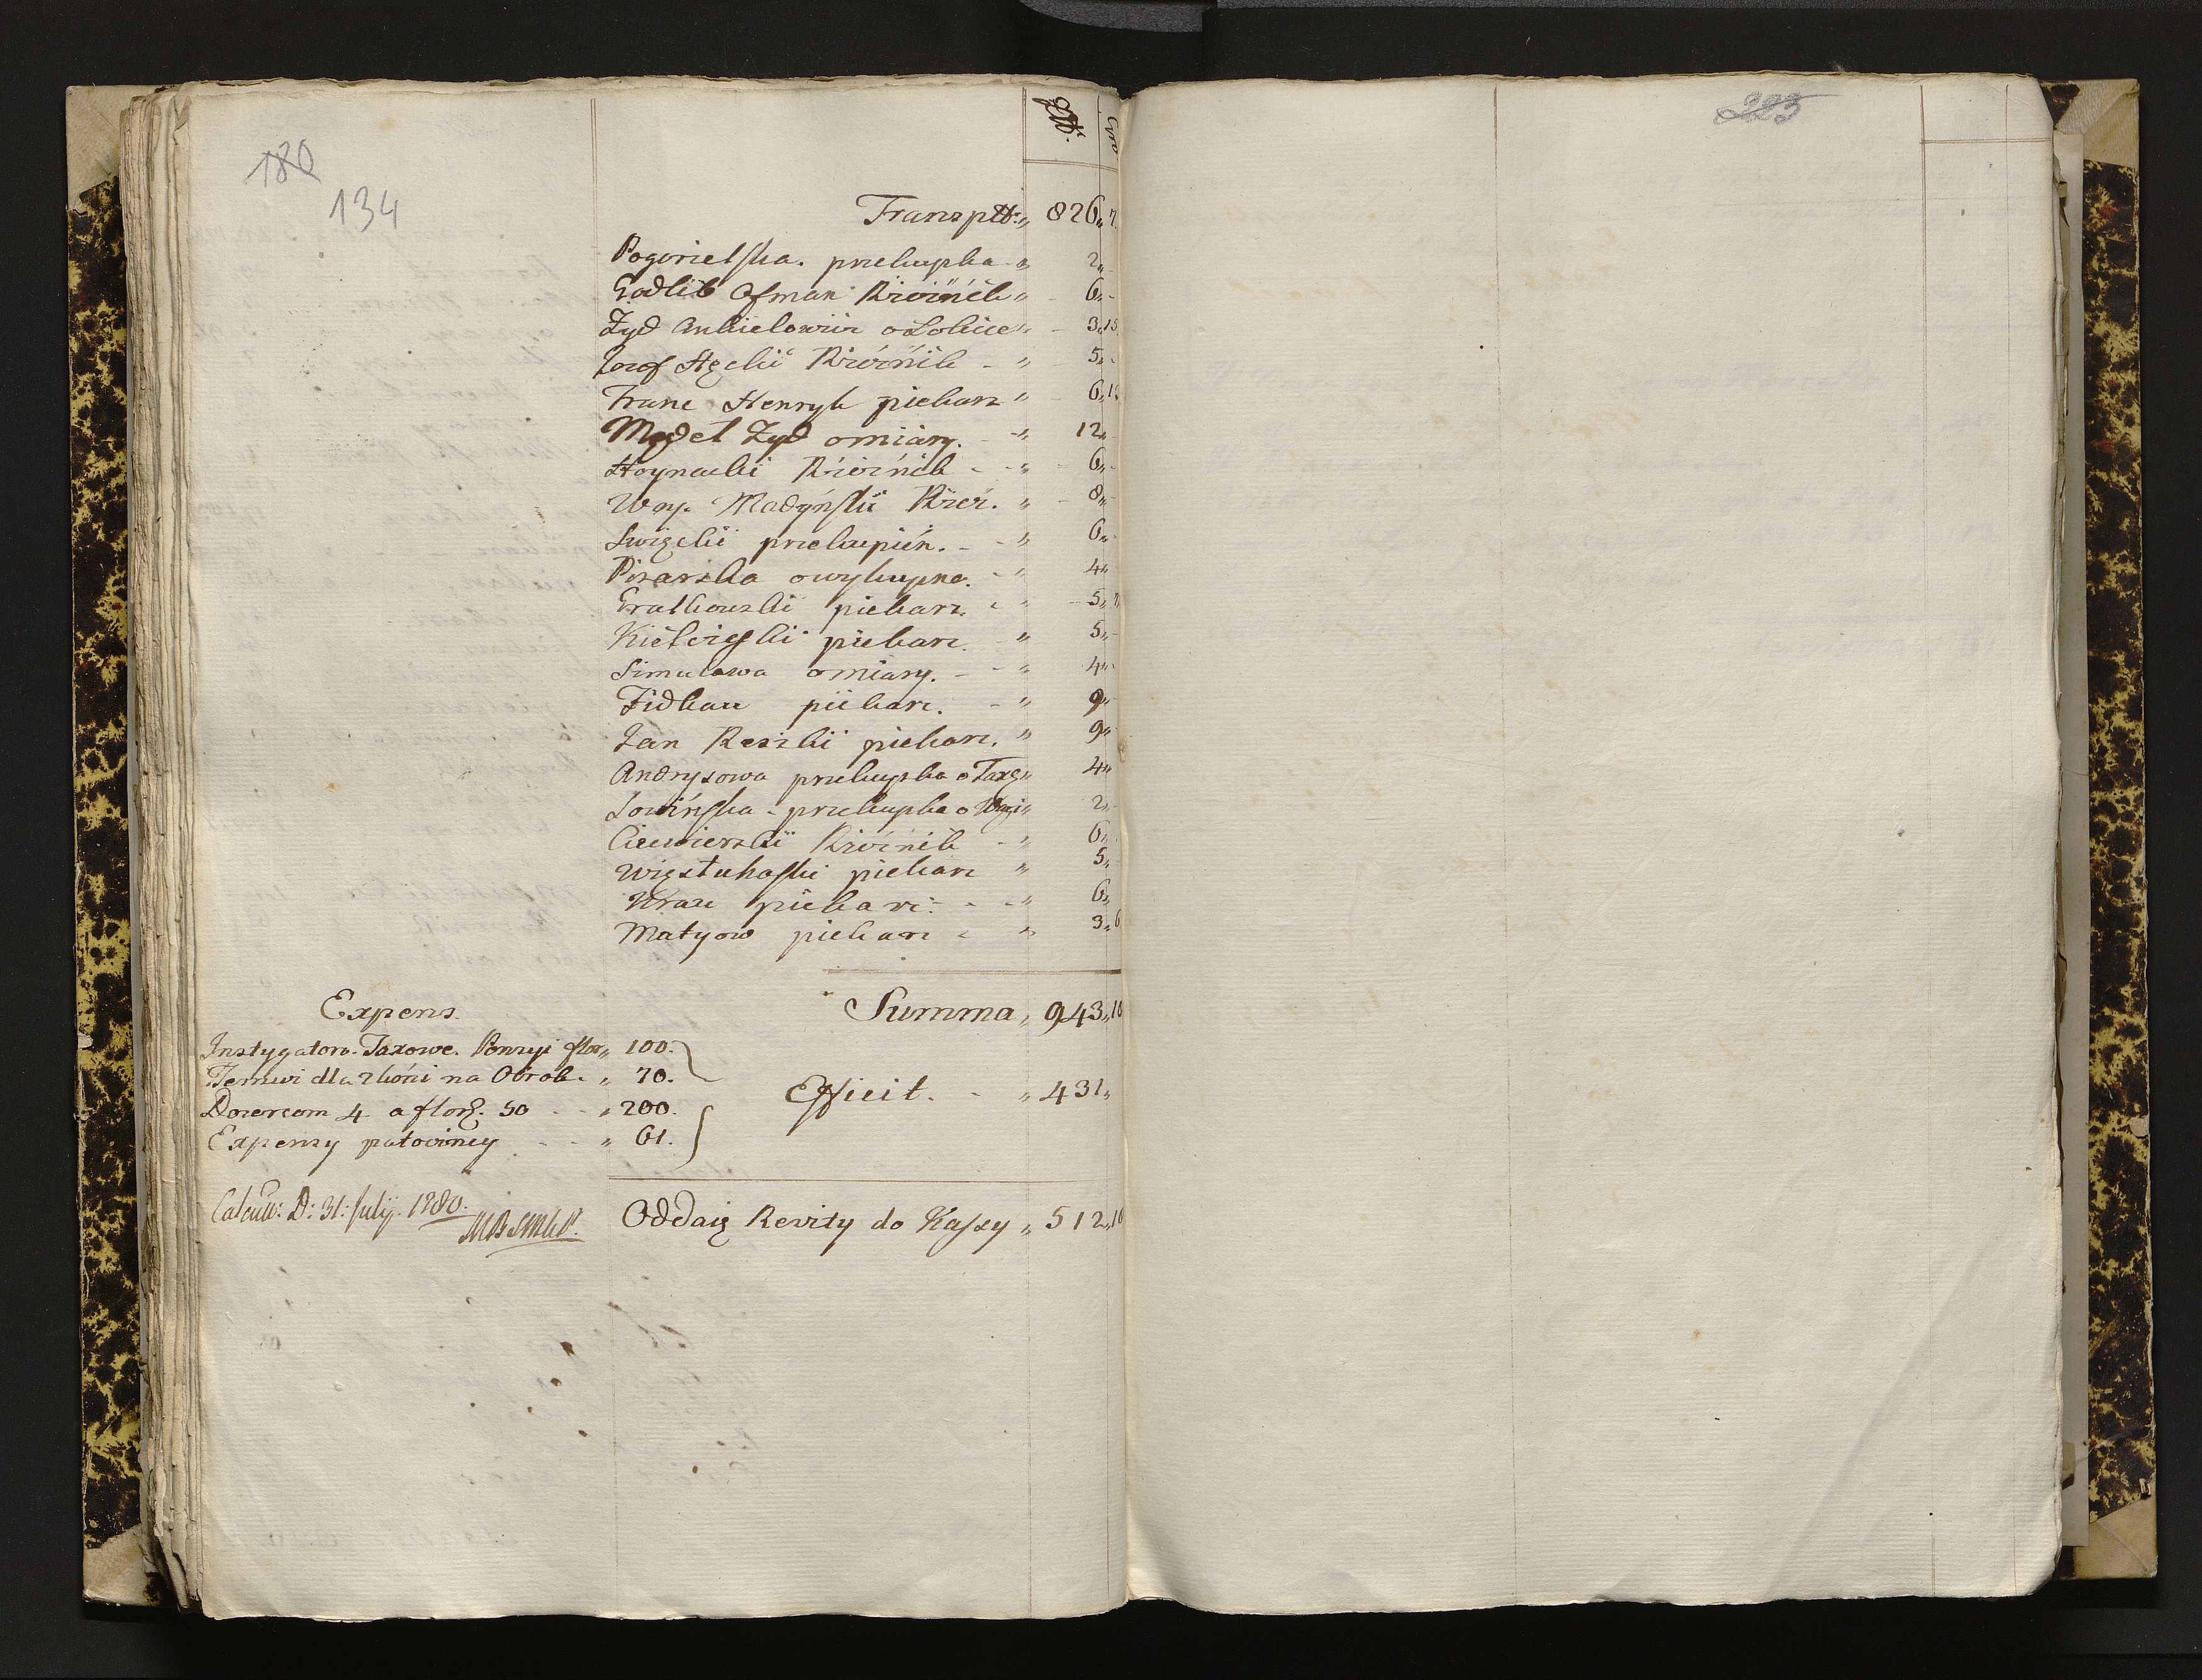 180
134
223
Transptt: „ 826 „ 7
Pogorielska. przekupka „ 2 „
Godlib Ofman Rzeźnik „ 6 „
Żyd Ankielowicz o Łokiec „ 3 „ 15
Jozef Rzeźnik „ 5 „
Franc Henryk piekarz „ 6 „
Mędel Żyd o miary. „ 12 „
Hoynacki Rzeźnik „ 6 „
Way. Madyński Rzeź. „ 8 „
Swięcki przekupień. „ 6 „
Pisarska o wykupno. „ 4 „
Gratkowski piekarz. „ 5 „
Kiełczeski piekarz. „ 5 „
Simulowa o miary. „ 4 „
Fidkau piekarz. „ 9 „
Jan Reszki piekarz. „ 9 „
Andrysowa przekupka o Taxę „ 4 „
Łowińska przekupka o „ 2 „
Ciewierski Rzeźnik „ 6 „
piekarz „ 5 „
Krau piekarz. „ 6 „
Matyow piekarz „ 3 „ 6
Summa „ 943 „ 16
Expens.
Instygatoro. Taxowe. Pensyi flor „ 100.
Temuż dla 2 koni na Obrok. „ 70.
Dozorcom 4. a flor. 50 „ 200.
Expensy potoczney „ 61.
Efficit. „ 431 „
Calcul: D: 31: July. 1780.
Oddaię Reszty do Kassy „ 512 „ 16